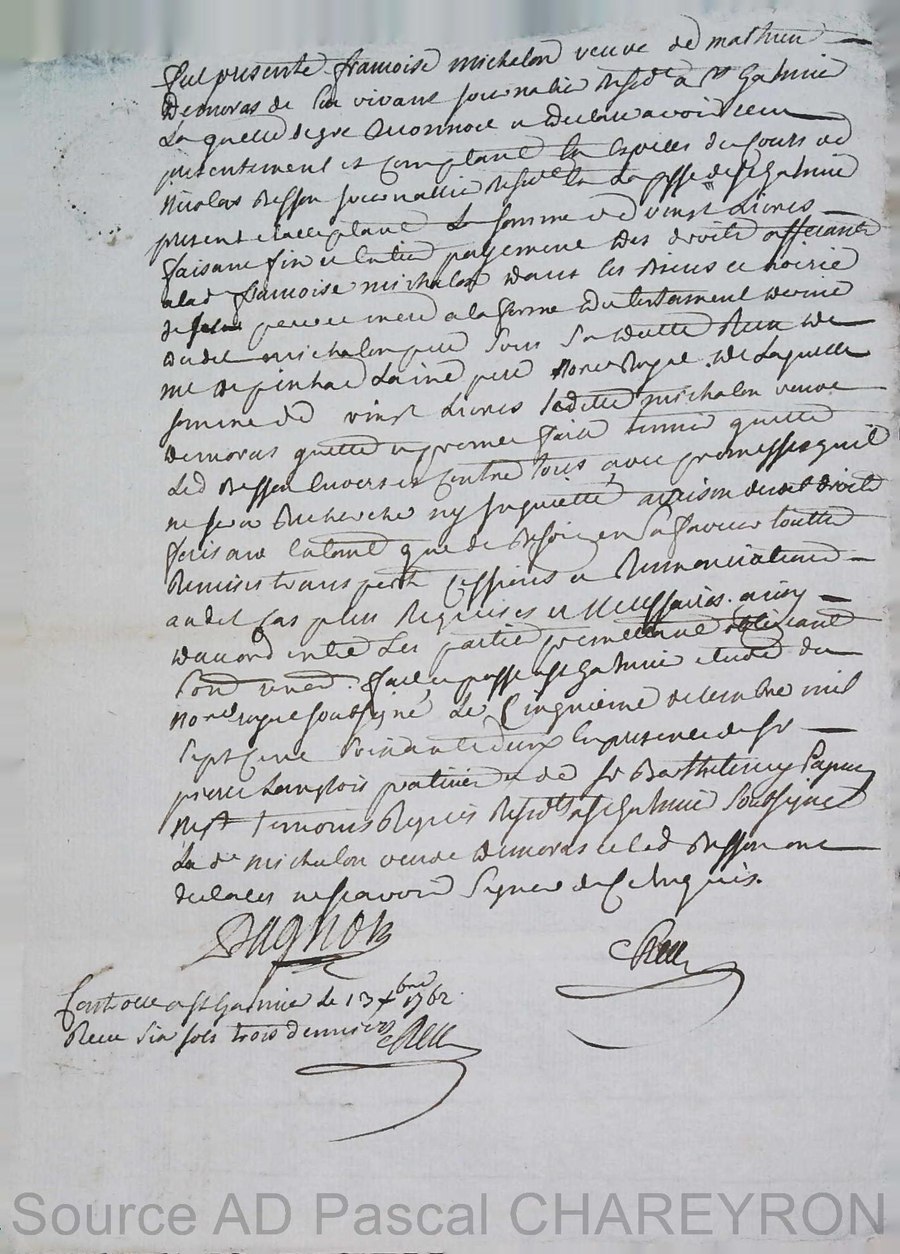 fut presente francoise michelon veuve de mathieu
demoras de son vivant journalie resid^t a s^t Galmie
La quelle de gre reconnoit et declare avoir receu
presentement et comptant en especes du cours de
Nicolas Besson journallie resid^t en la psse de st Galmie
present et acceptant La somme de vingt Livres
faisant fin et entier payement des droits afferants
a lad francoise michelon dans les biens et hoirie
de ses pere et mere a la forme du testament
dudit michalon pere sous sa datte Receu
me depinhac laine pere Nore Royal. De Laquelle
somme de vingt Livres ladette michalon veuve
demoras quitte et promet faire tenir quitte
Led Besson envers et contre tous avec promesse quil
ne sera Recherche ny inquiette a raison desdt droits
faisant entant que de besoin en sa faveur toutte
Remises transports cessions et Renonciations
audit cas plus Requises et necessaires. ainsy
daccord entre Les partie promettant obligeant
fait et passe a st Galmie etude du
Nore royal soubsigné Le Cinquieme decembre mil
sept cent soixante deux en presence de sr
pierre Langlois et de sr Barthelemy
temoins Requis resid^ts a st Galmie soubsignes
La d^e michelon veuve demoras et led Besson ont
declares ne scavoir signer de ce enquis.
Reu
Controlle a st Galmie le 13 x^bre 1762.
Receu six sols trois denniers Reu
Source AD Pascal CHAREYRON